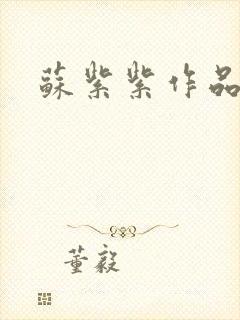 蘇紫紫作品
董毅